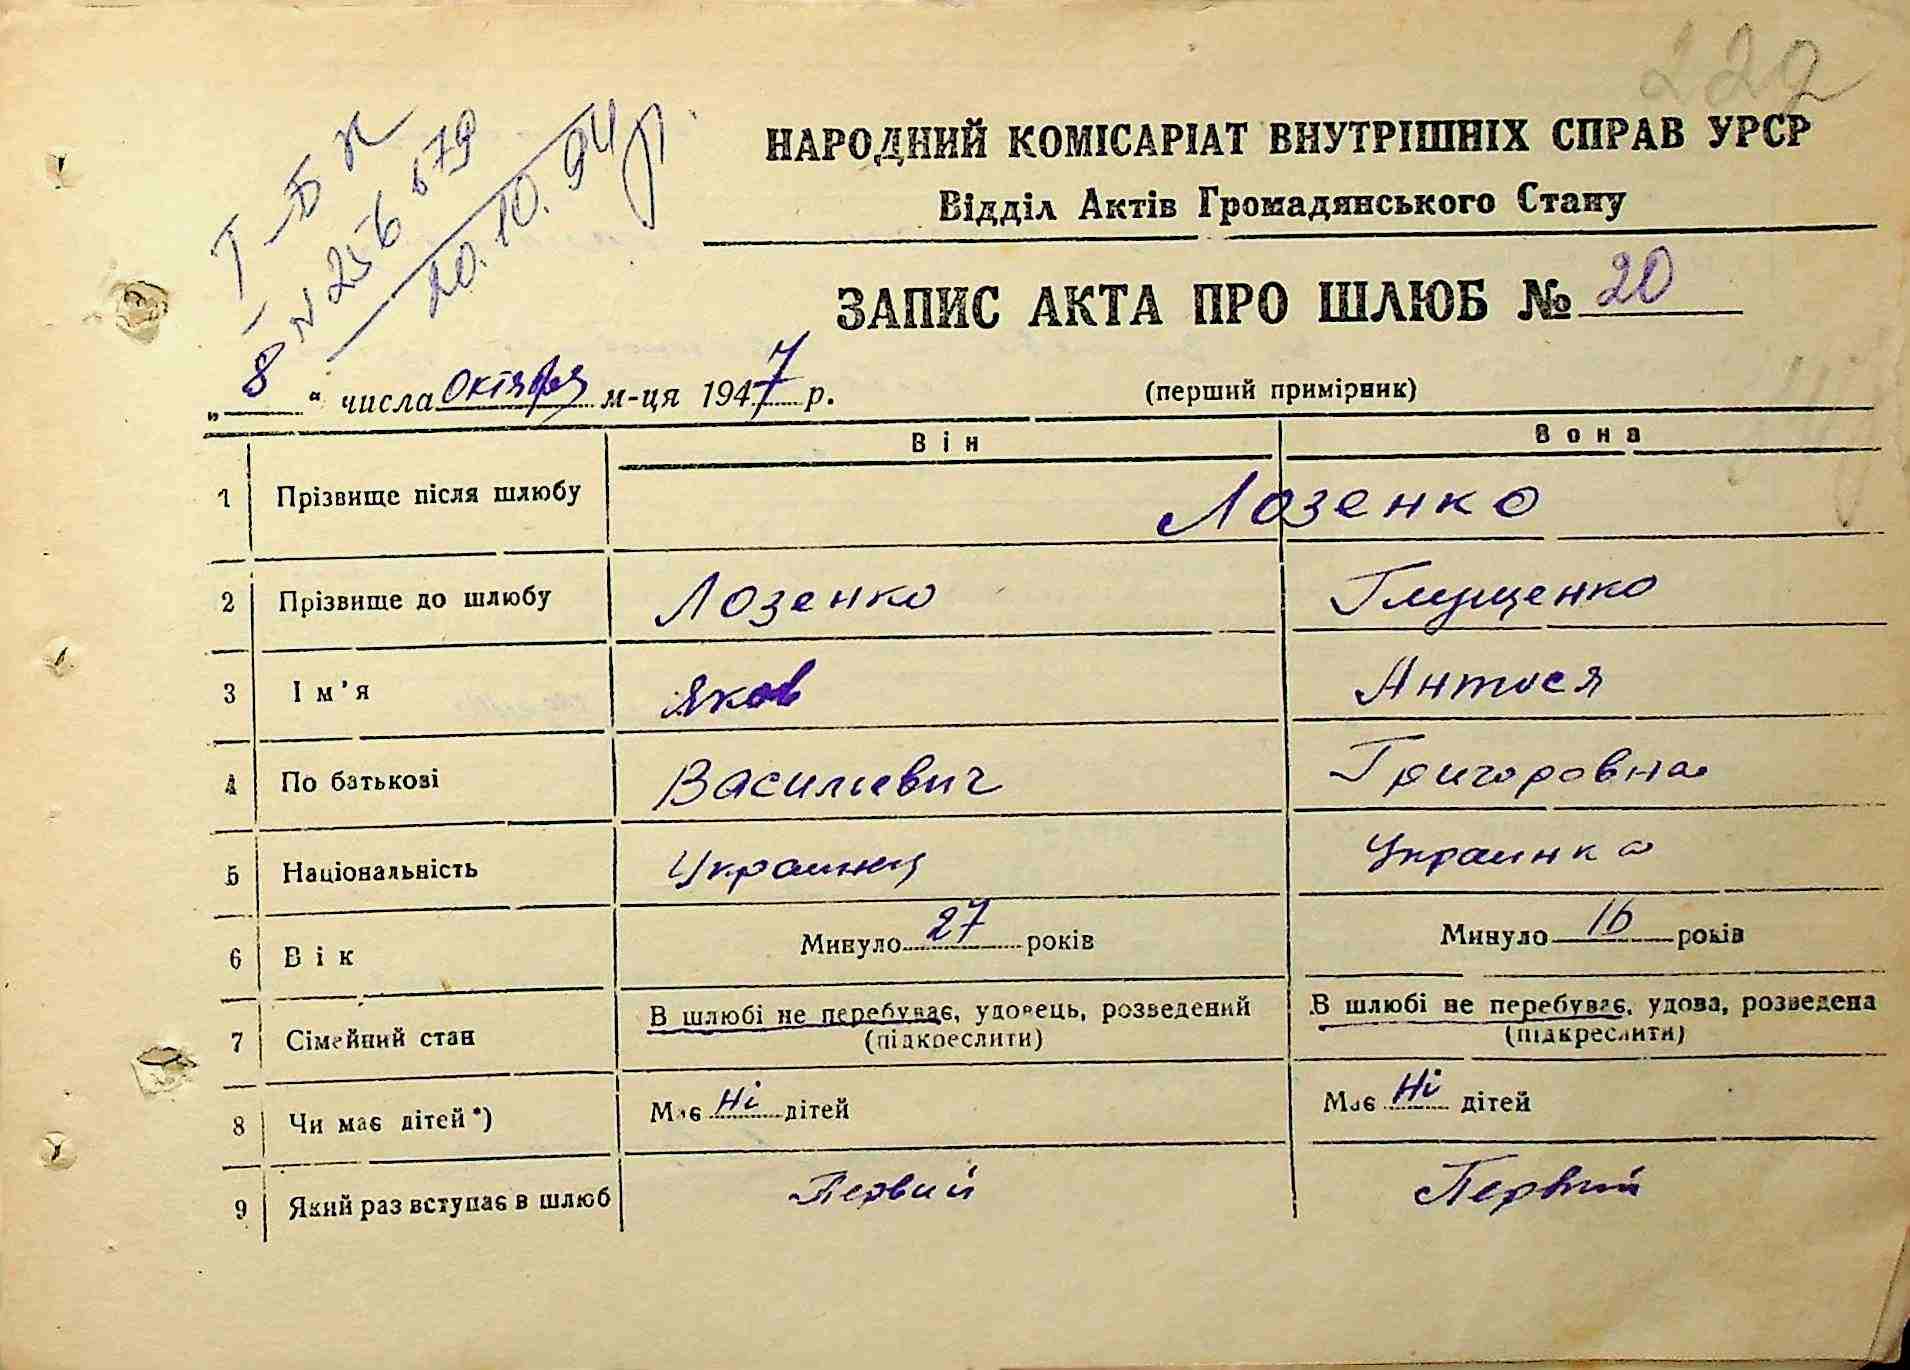 229
I-БК
N 256679
20.10.94 р.
НАРОДНИЙ КОМІСАРІАТ ВНУТРІШНІХ СПРАВ УРСР
Відділ Актів Громадянського Стану
ЗАПИС АКТА ПРО ШЛЮБ № 20
„ 8 “ числа октября м-ця 1947 р. (перший примірник)
Він Вона
1 Прізвище після шлюбу Лозенко
2 Прізвище до шлюбу Лозенко Глущенко
3 Ім’я Яков Антося
4 По батькові Василиевич Григоровна
5 Національність Украинец Украинка
6 Вік Минуло 27 років Минуло 16 років
7 Сімейний стан В шлюбі не перебуває, удовець, розведений (підкреслити) В шлюбі не перебуває, удова, розведена (підкреслити)
8 Чи має дітей *) Має Ні дітей Має Ні дітей
9 Який раз вступає в шлюб Первий Первий